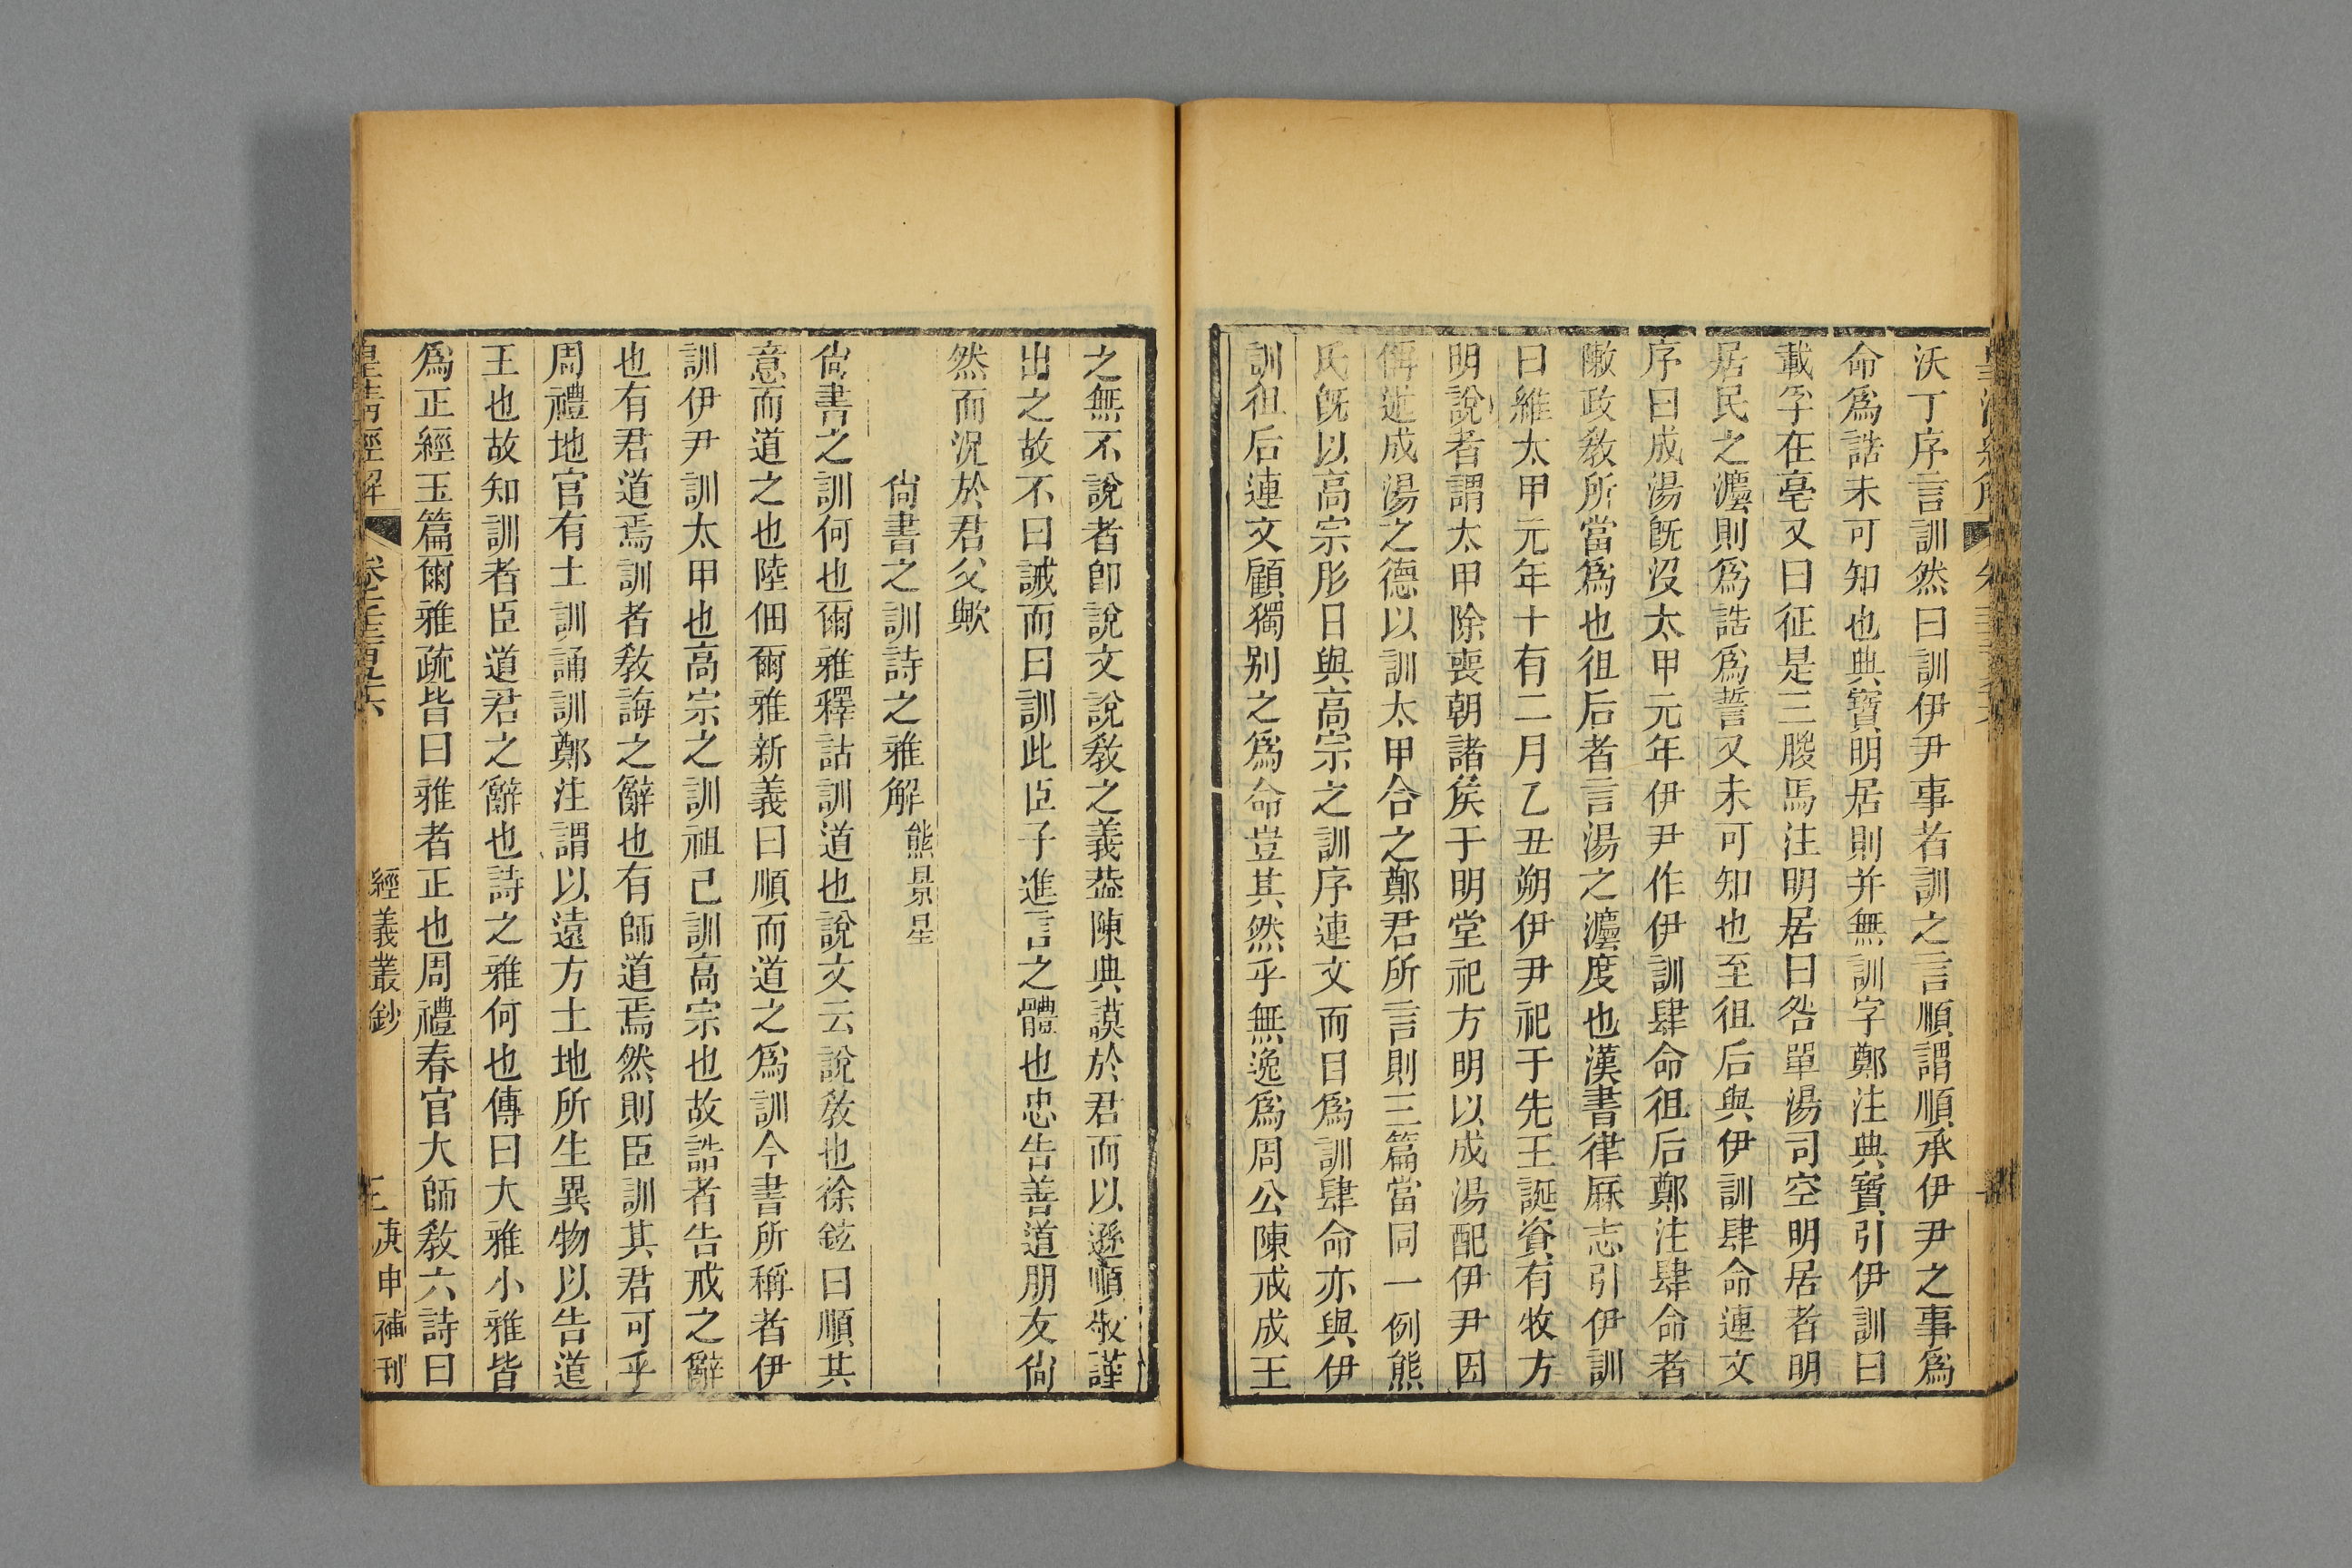 沃丁序言訓然曰訓伊尹事者訓之言順謂順承伊尹之事爲
命爲誥未可知也典寶明居則并無訓字鄭注典寶引伊訓曰
載孚在亳又曰征是三朡馬注明居曰咎單湯司空明居者明
居民之灋則爲誥爲誓又未可知也至徂后與伊訓肆命連文
序曰成湯旣沒太甲元年伊尹作伊訓肆命徂后鄭注肆命者
陳政敎所當爲也徂后者言湯之灋度也漢書律厤志引伊訓
曰維太甲元年十有二月乙丑朔伊尹祀于先王誕資有牧方
明說者謂太甲除喪朝諸矦于明堂祀方明以成湯配伊尹因
俾述成湯之德以訓太甲合之鄭君所言則三篇當同一例熊
氏旣以高宗肜日與高宗之訓序連文而曰爲訓肆命亦與伊
訓徂后連文顧獨别之爲命豈其然乎無逸爲周公陳戒成王
之無不說者卽說文說敎之義葢陳典謨於君而以遜順敬謹
出之故不曰誡而曰訓此臣子進言之體也忠告善道朋友尙
然而況於君父歟
尙書之訓詩之雅解 熊景星
尙書之訓何也爾雅釋詁訓道也說文云說敎也徐鉉曰順其
意而道之也陸佃爾雅新義曰順而道之爲訓今書所稱者伊
訓伊尹訓太甲也高宗之訓祖己訓高宗也故誥者告戒之辭
也有君道焉訓者敎誨之辭也有師道焉然則臣訓其君可乎
周禮地官有土訓誦訓鄭注謂以遠方土地所生異物以告道
王也故知訓者臣道君之辭也詩之雅何也傳曰大雅小雅皆
爲正經玉篇爾雅疏皆曰雅者正也周禮春官大師敎六詩曰
皇淸經解 經義叢鈔 庚申補刊